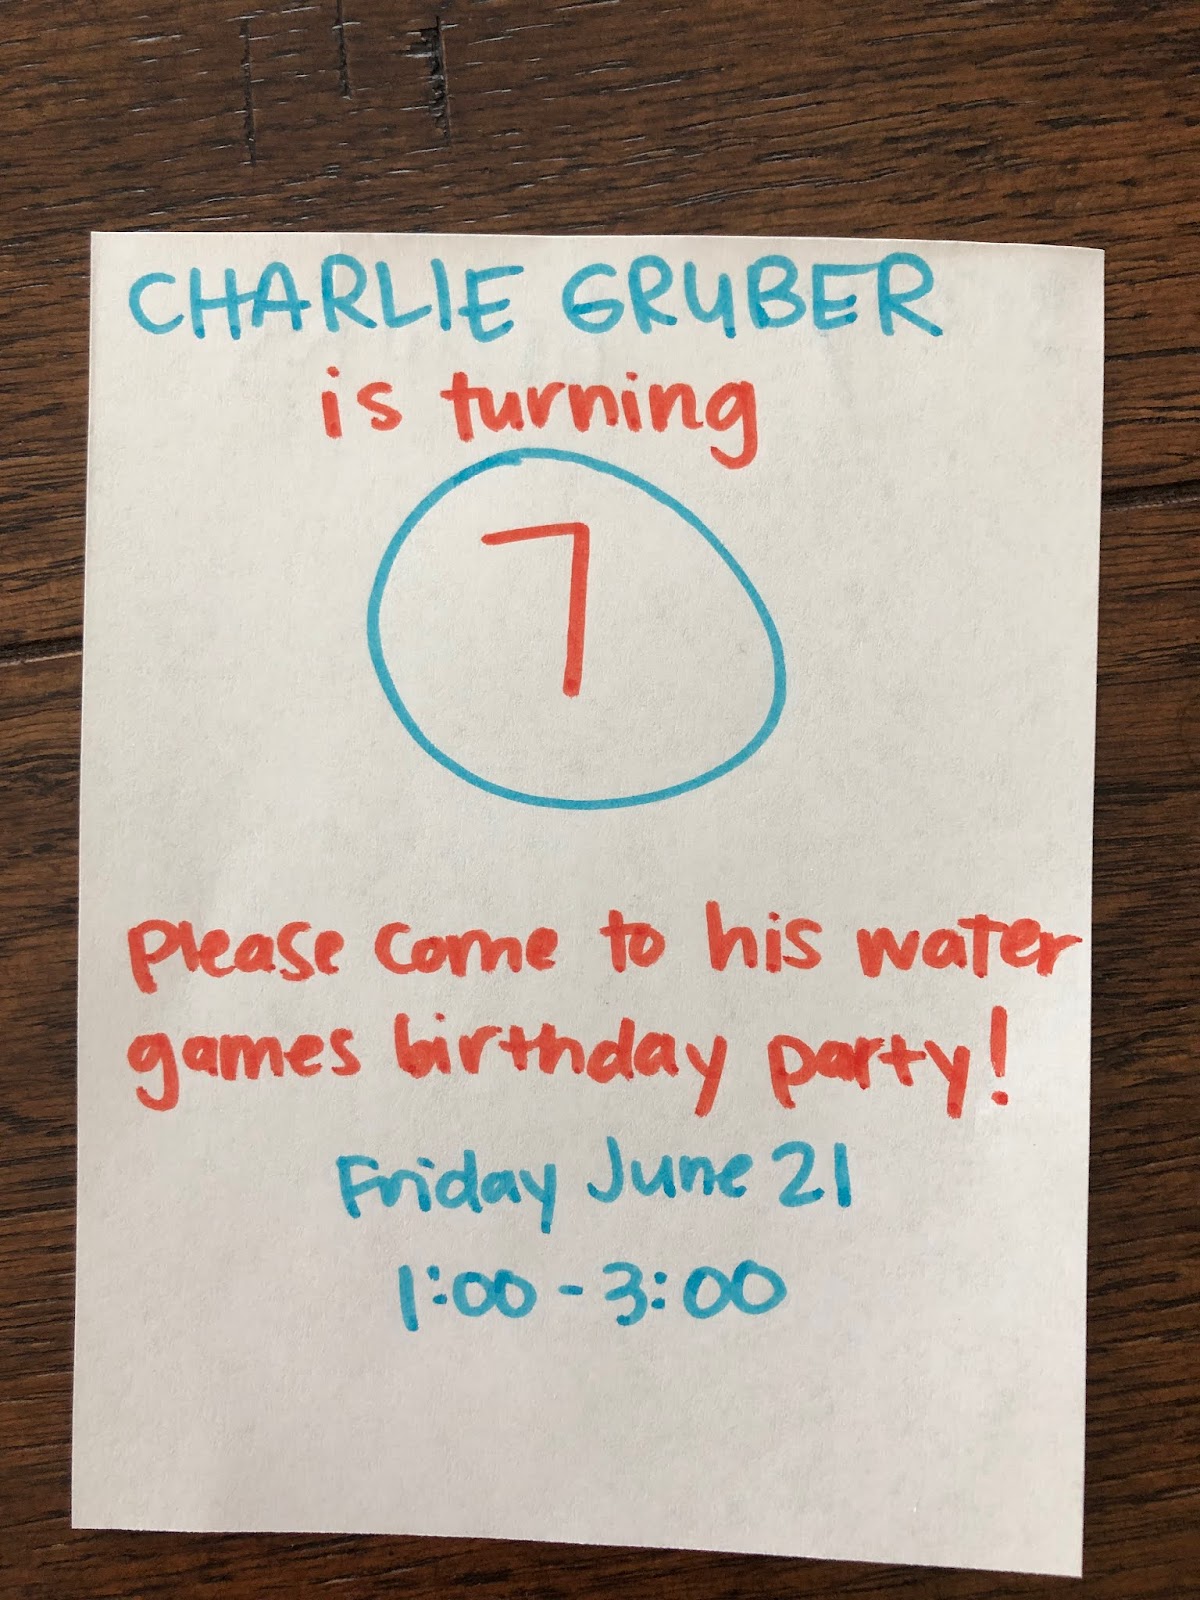 CHARLIE GRUBER
is turning
7
please come to his water
games birthday party!
Friday June 21
1:00 - 3:00